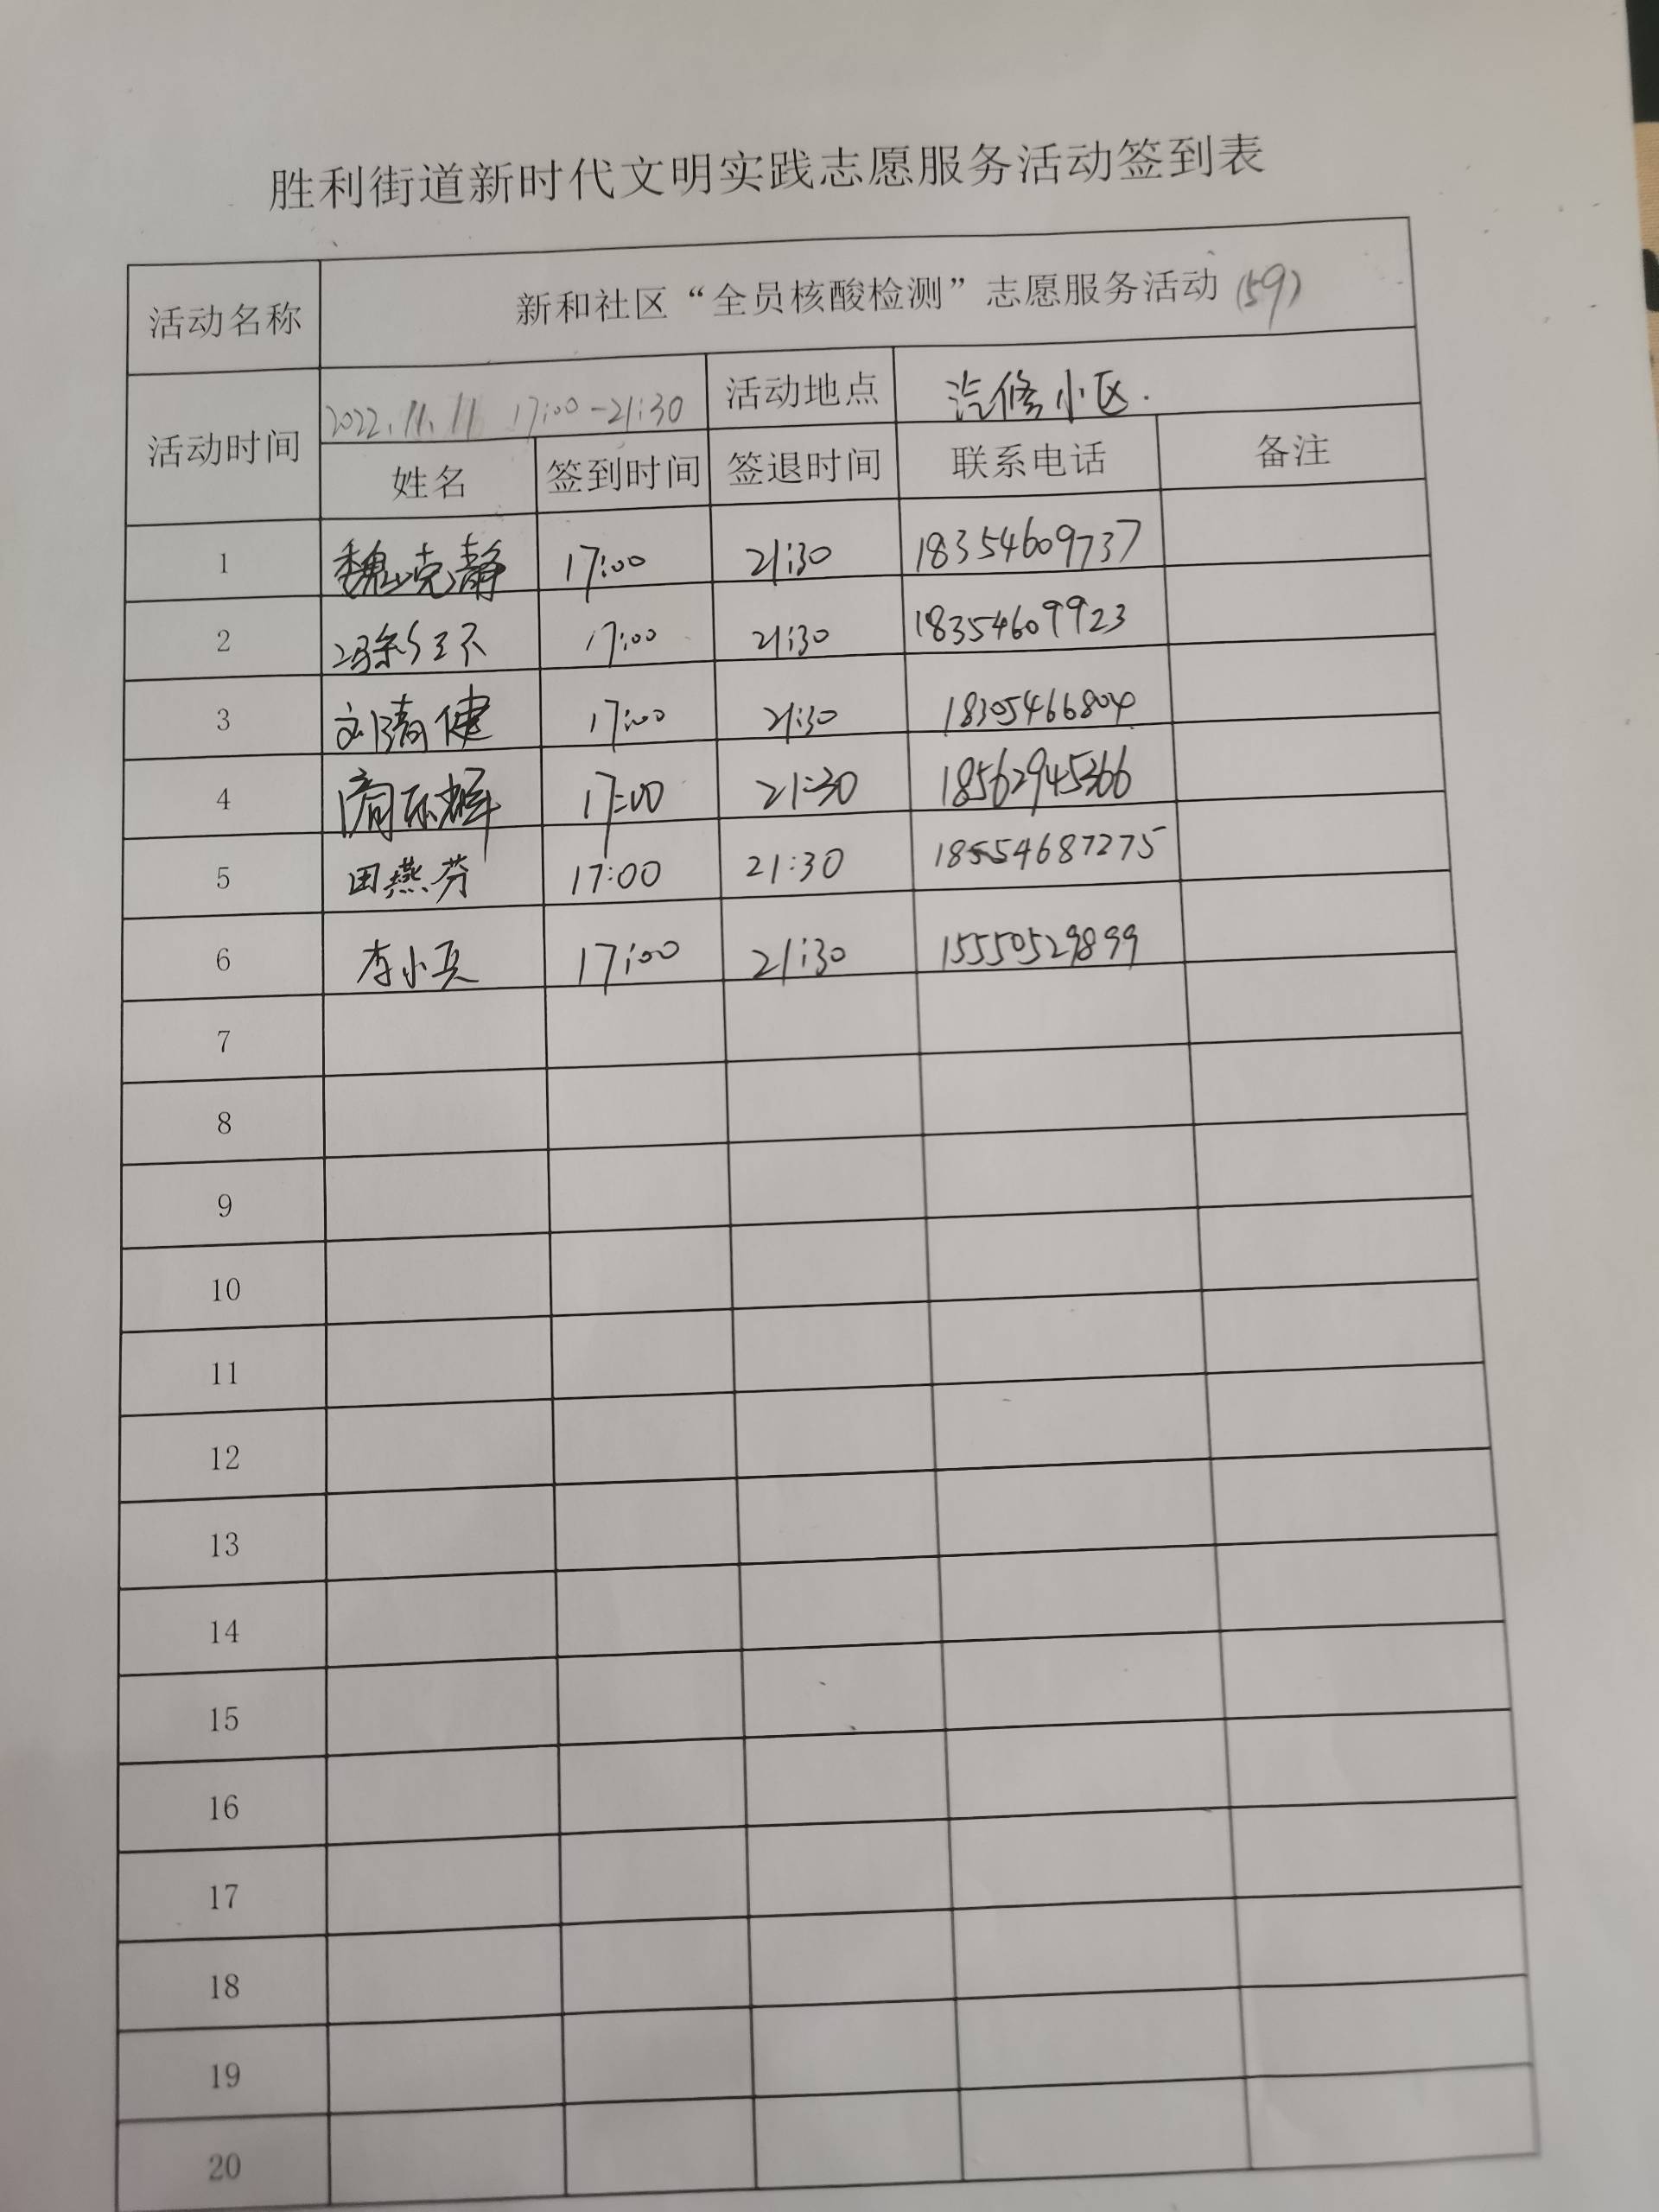 胜利街道新时代文明实践志愿服务活动签到表
活动名称 新和社区“全员核酸检测”志愿服务活动(59)
活动时间 2022.11.11 17:00-21:30 活动地点 汽修小区.
姓名 签到时间 签退时间 联系电话 备注
1 魏克静 17:00 21:30 18354609737
2 17:00 21:30 18354609923
3 刘清健 17:00 21:30 18305466804
4 17:00 21:30 18562945366
5 田燕芬 17:00 21:30 18554687275
6 李小兵 17:00 21:30 15550529899
7
8
9
10
11
12
13
14
15
16
17
18
19
20